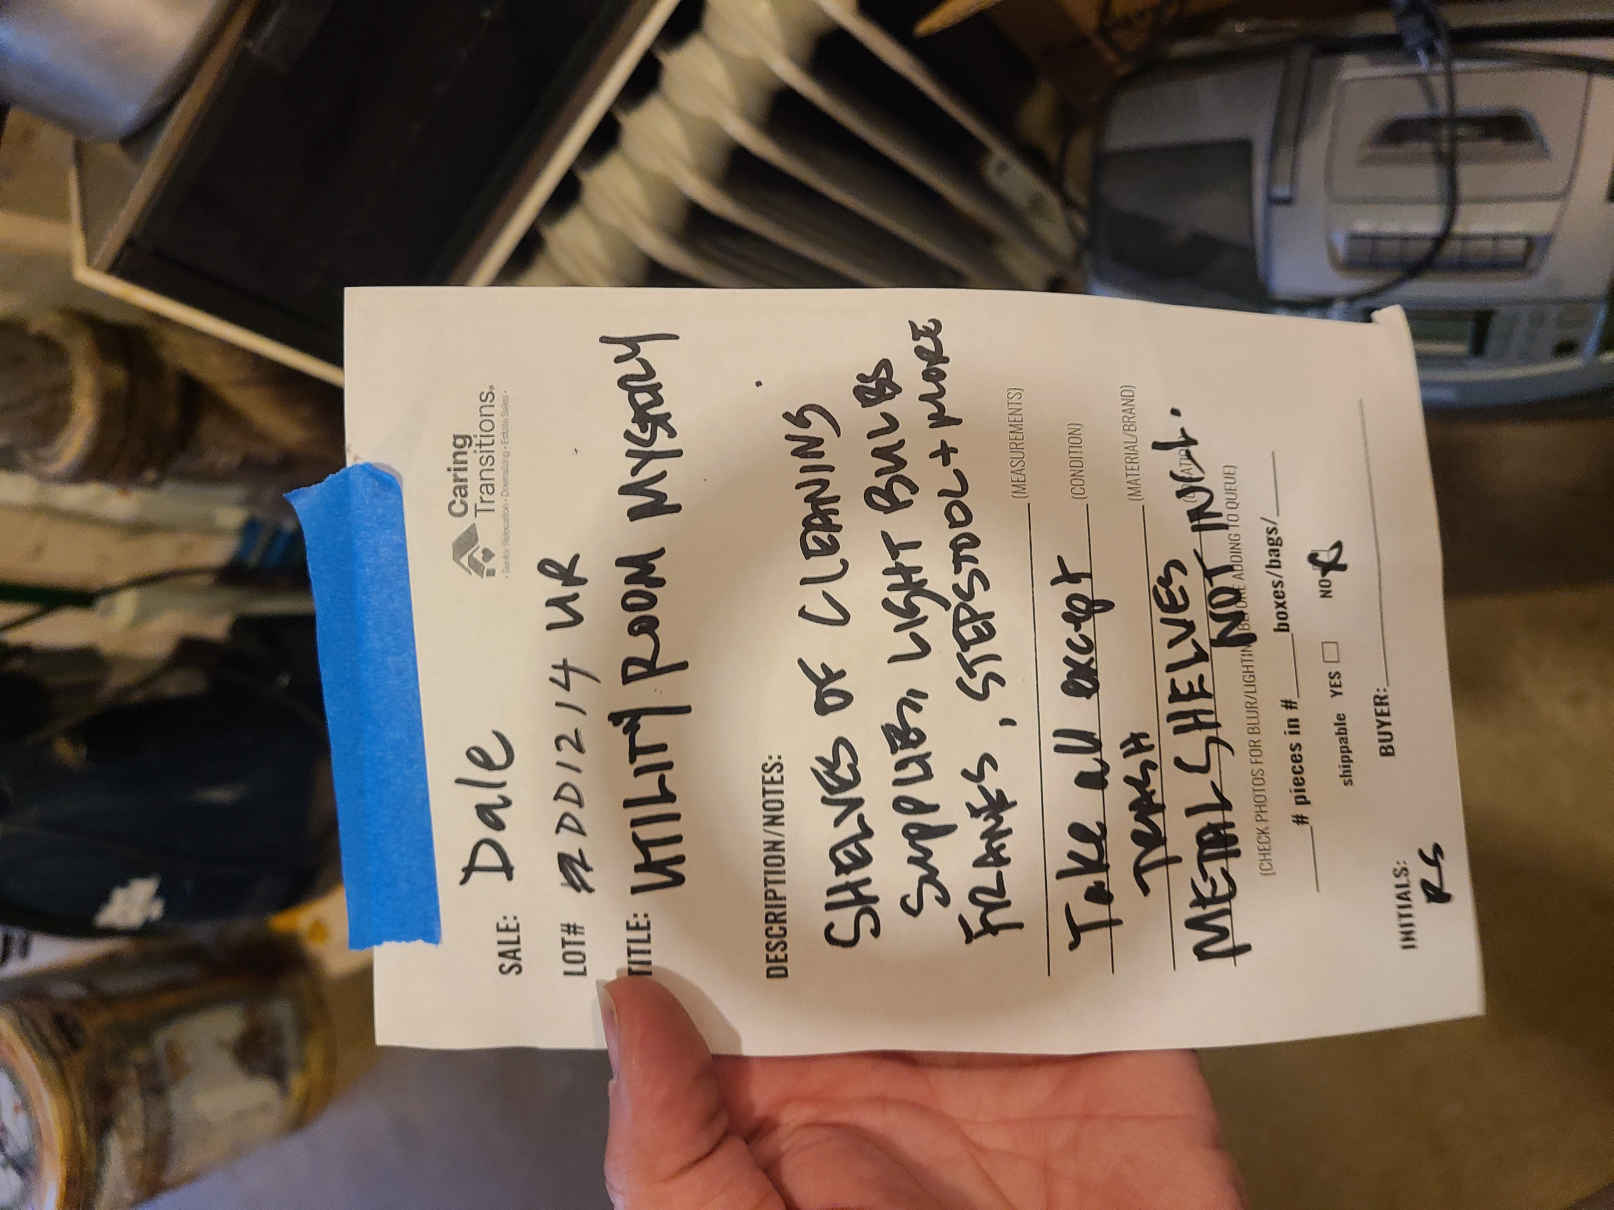 Caring
Transitions.
• Senior Relocation • Downsizing • Estate Sales •
SALE: Dale
LOT# DD1214 UR
TITLE: UTILITY ROOM MYSTERY
DESCRIPTION/NOTES:
SHELVES OF CLEANING
SUPPLIES, LIGHT BULBS
FRAMES, STEPSTOOL + MORE
(MEASUREMENTS)
Take all except (CONDITION)
TRASH (MATERIAL/BRAND)
METAL SHELVES
NOT INCL.
(CHECK PHOTOS FOR BLUR/LIGHTING BEFORE ADDING TO QUEUE)
# pieces in # boxes/bags/
shippable YES NO
BUYER:
INITIALS:
RS